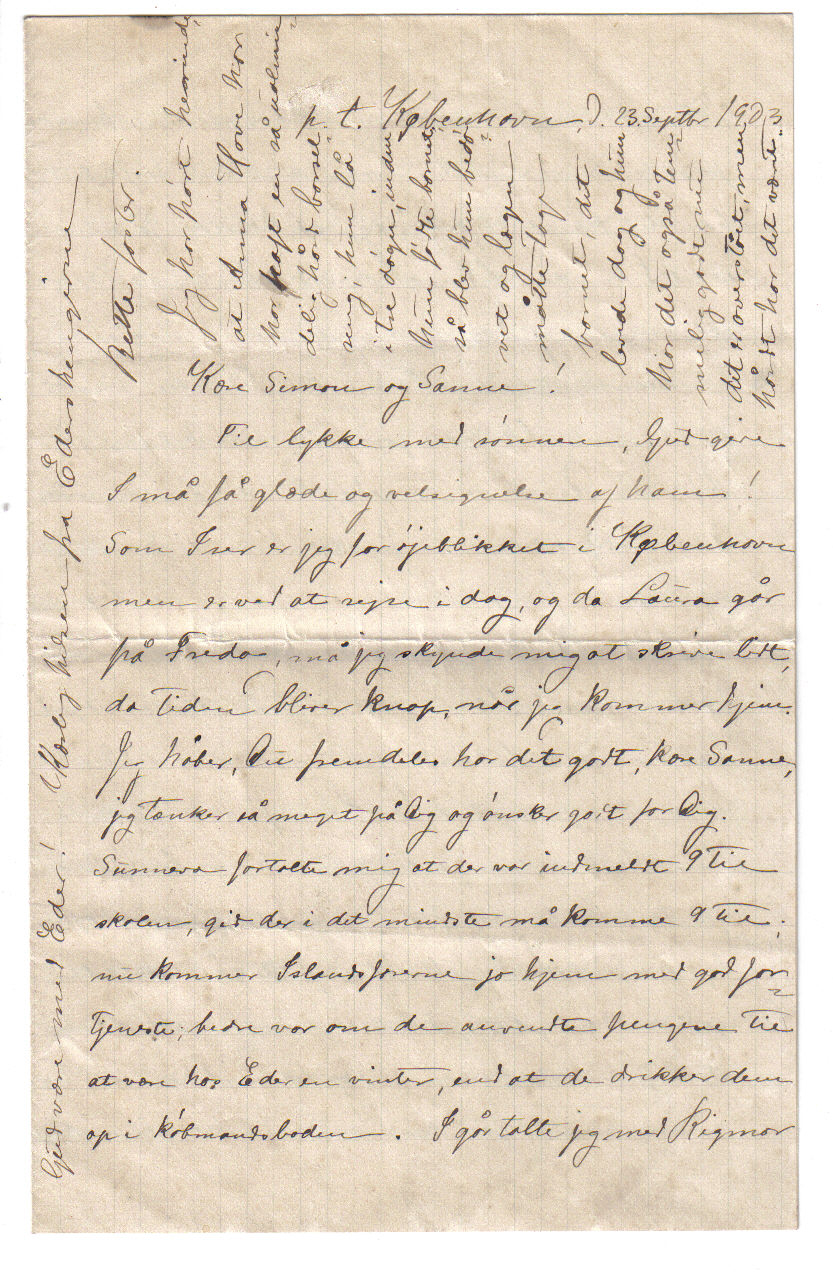 p. t. København, d. 23. Septbr 1903.
Kære Simon og Sanne!
Til lykke med sønnen, Gud give
I må få glæde og velsignelse af ham!
Som I ser er jeg for øjeblikket i København
men er ved at rejse i dag, og da Laura går
på Fredag, må jeg skynde mig at skrive lidt,
da tiden bliver knap, når jeg kommer hjem.
Jeg håber, Du fremdeles har det godt, kære Sanne,
jeg tænker så meget på Dig og ønsker godt for Dig.
Sunneva fortalte mig at der var indmeldt 9 til
skolen, gid der i det mindste må komme 9 til;
nu kommer Islandsfarerne jo hjem med god for-
tjeneste; bedre var om de anvendte pengene til
at være hos Eder en vinter, end at de drikker dem
op i købmandsboden. I går talte jeg med Rigmor
Jeg har hørt herinde,
at Anna Hove har
har haft en så ualmin-
delig hård barsel-
seng; hun lå
i tre døgn, inden
hun fødte barnet,
så blev hun bedø-
vet og lægen
måtte tage
barnet, det
levede dog og hun
har det også tem-
melig godt nu
det er overstået, men
hårdt har det været.
Gud være med Eder! Kærlig hilsen fra Eders hengivne
faster.